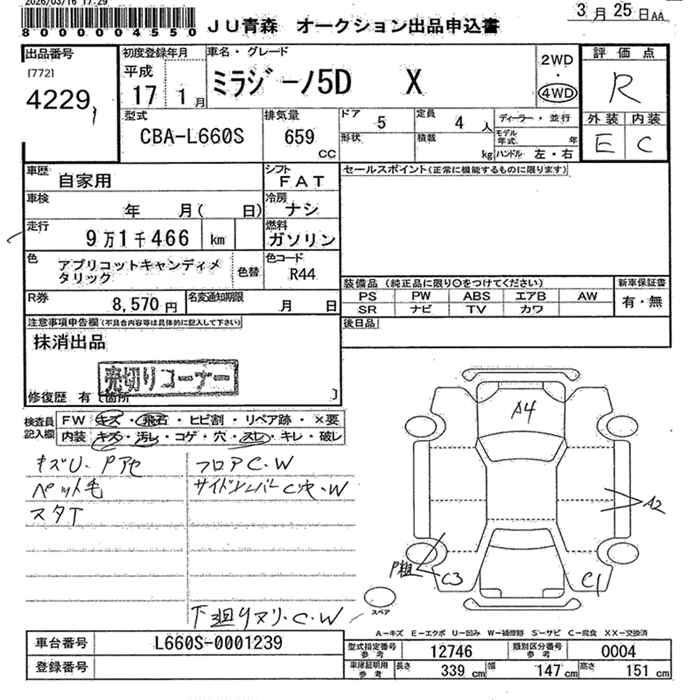 2026/03/16 17:29
800004550
JU青森 オークション出品申込書
3月25日AA
出品番号
[772]
4229
初度登録年月
平成
17 1月
車名・グレード
ミラジーノ5D X
2WD
・
4WD
評価点
R
外装 内装
E C
型式
CBA-L660S
排気量
659
CC
ドア
5
形状
定員
4人
積載
kg
ディーラー・並行
モデル年式 年
ハンドル 左・右
車歴
自家用
シフト
FAT
車検
年 月( 日)
冷房
ナシ
走行
9万1千466 km
燃料
ガソリン
色
アプリコットキャンディメタリック
色替
色コード
R44
R券
8,570円
名変通知期限
月 日
セールスポイント(正常に機能するものに限ります)
装備品(純正品に限り○をつけてください)
PS PW ABS エアB AW
SR ナビ TV カワ
新車保証書
有・無
後日品
注意事項申告欄(不具合内容等は具体的に記入して下さい)
抹消出品
売切りコーナー
修復歴 有[箇所 ]
検査員記入欄
FW キズ・飛石・ヒビ割・リペア跡・×要
内装 キズ・汚レ・コゲ・穴・スレ・キレ・破レ
キズU.Pアセ
ペット毛
スタT
フロアC.W
サイドシルバーC穴.W
下廻りヌリ.C.W
A4
A2
P粗
C3
C1
スペア
A-キズ E-エクボ U-凹み W-補修跡 S-サビ C-腐食 XX-交換済
車台番号
L660S-0001239
登録番号
型式指定番号参考
12746
類別区分番号参考
0004
車庫証明用参考
長さ 339 cm 幅 147 cm 高さ 151 cm